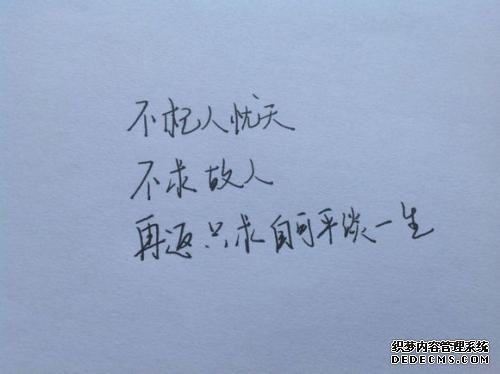 不杞人忧天
不求故人
再返只求自可平淡一生
织梦内容管理系统
DEDECMS.COM